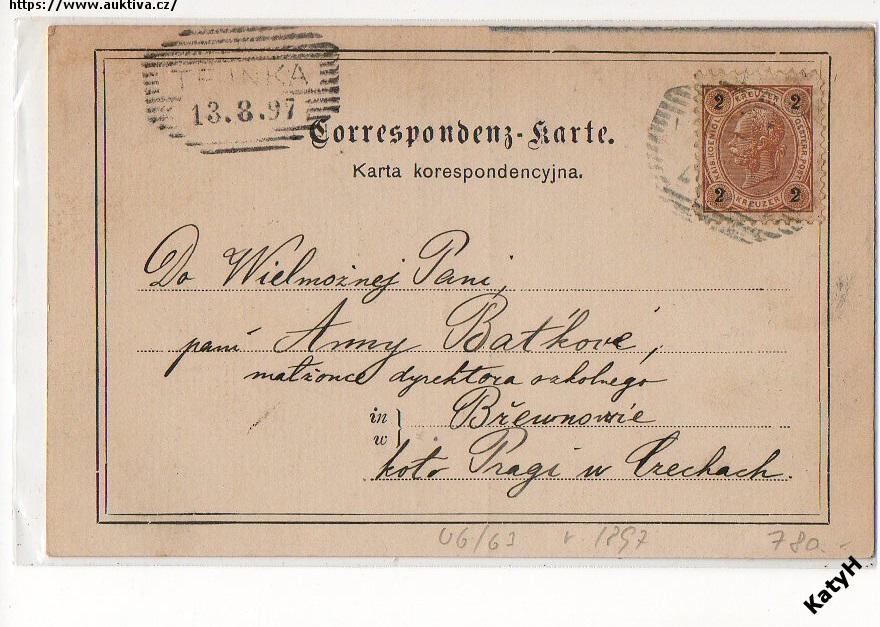 https://www.auktiva.cz/
TEJNKA
13.8.97
Correspondenz-Karte.
Karta korespondencyjna.
2 KREUZER 2
KAIS.KOENIGL. OESTERR.POST
2 KREUZER 2
Do Wielmożnej Pani,
paní Anny Baťkové,
małżonce dyrektora szkolnego
in Břewnowie
w
koło Pragi w Czechach.
UG/63 r. 1897 780.-
KatyH